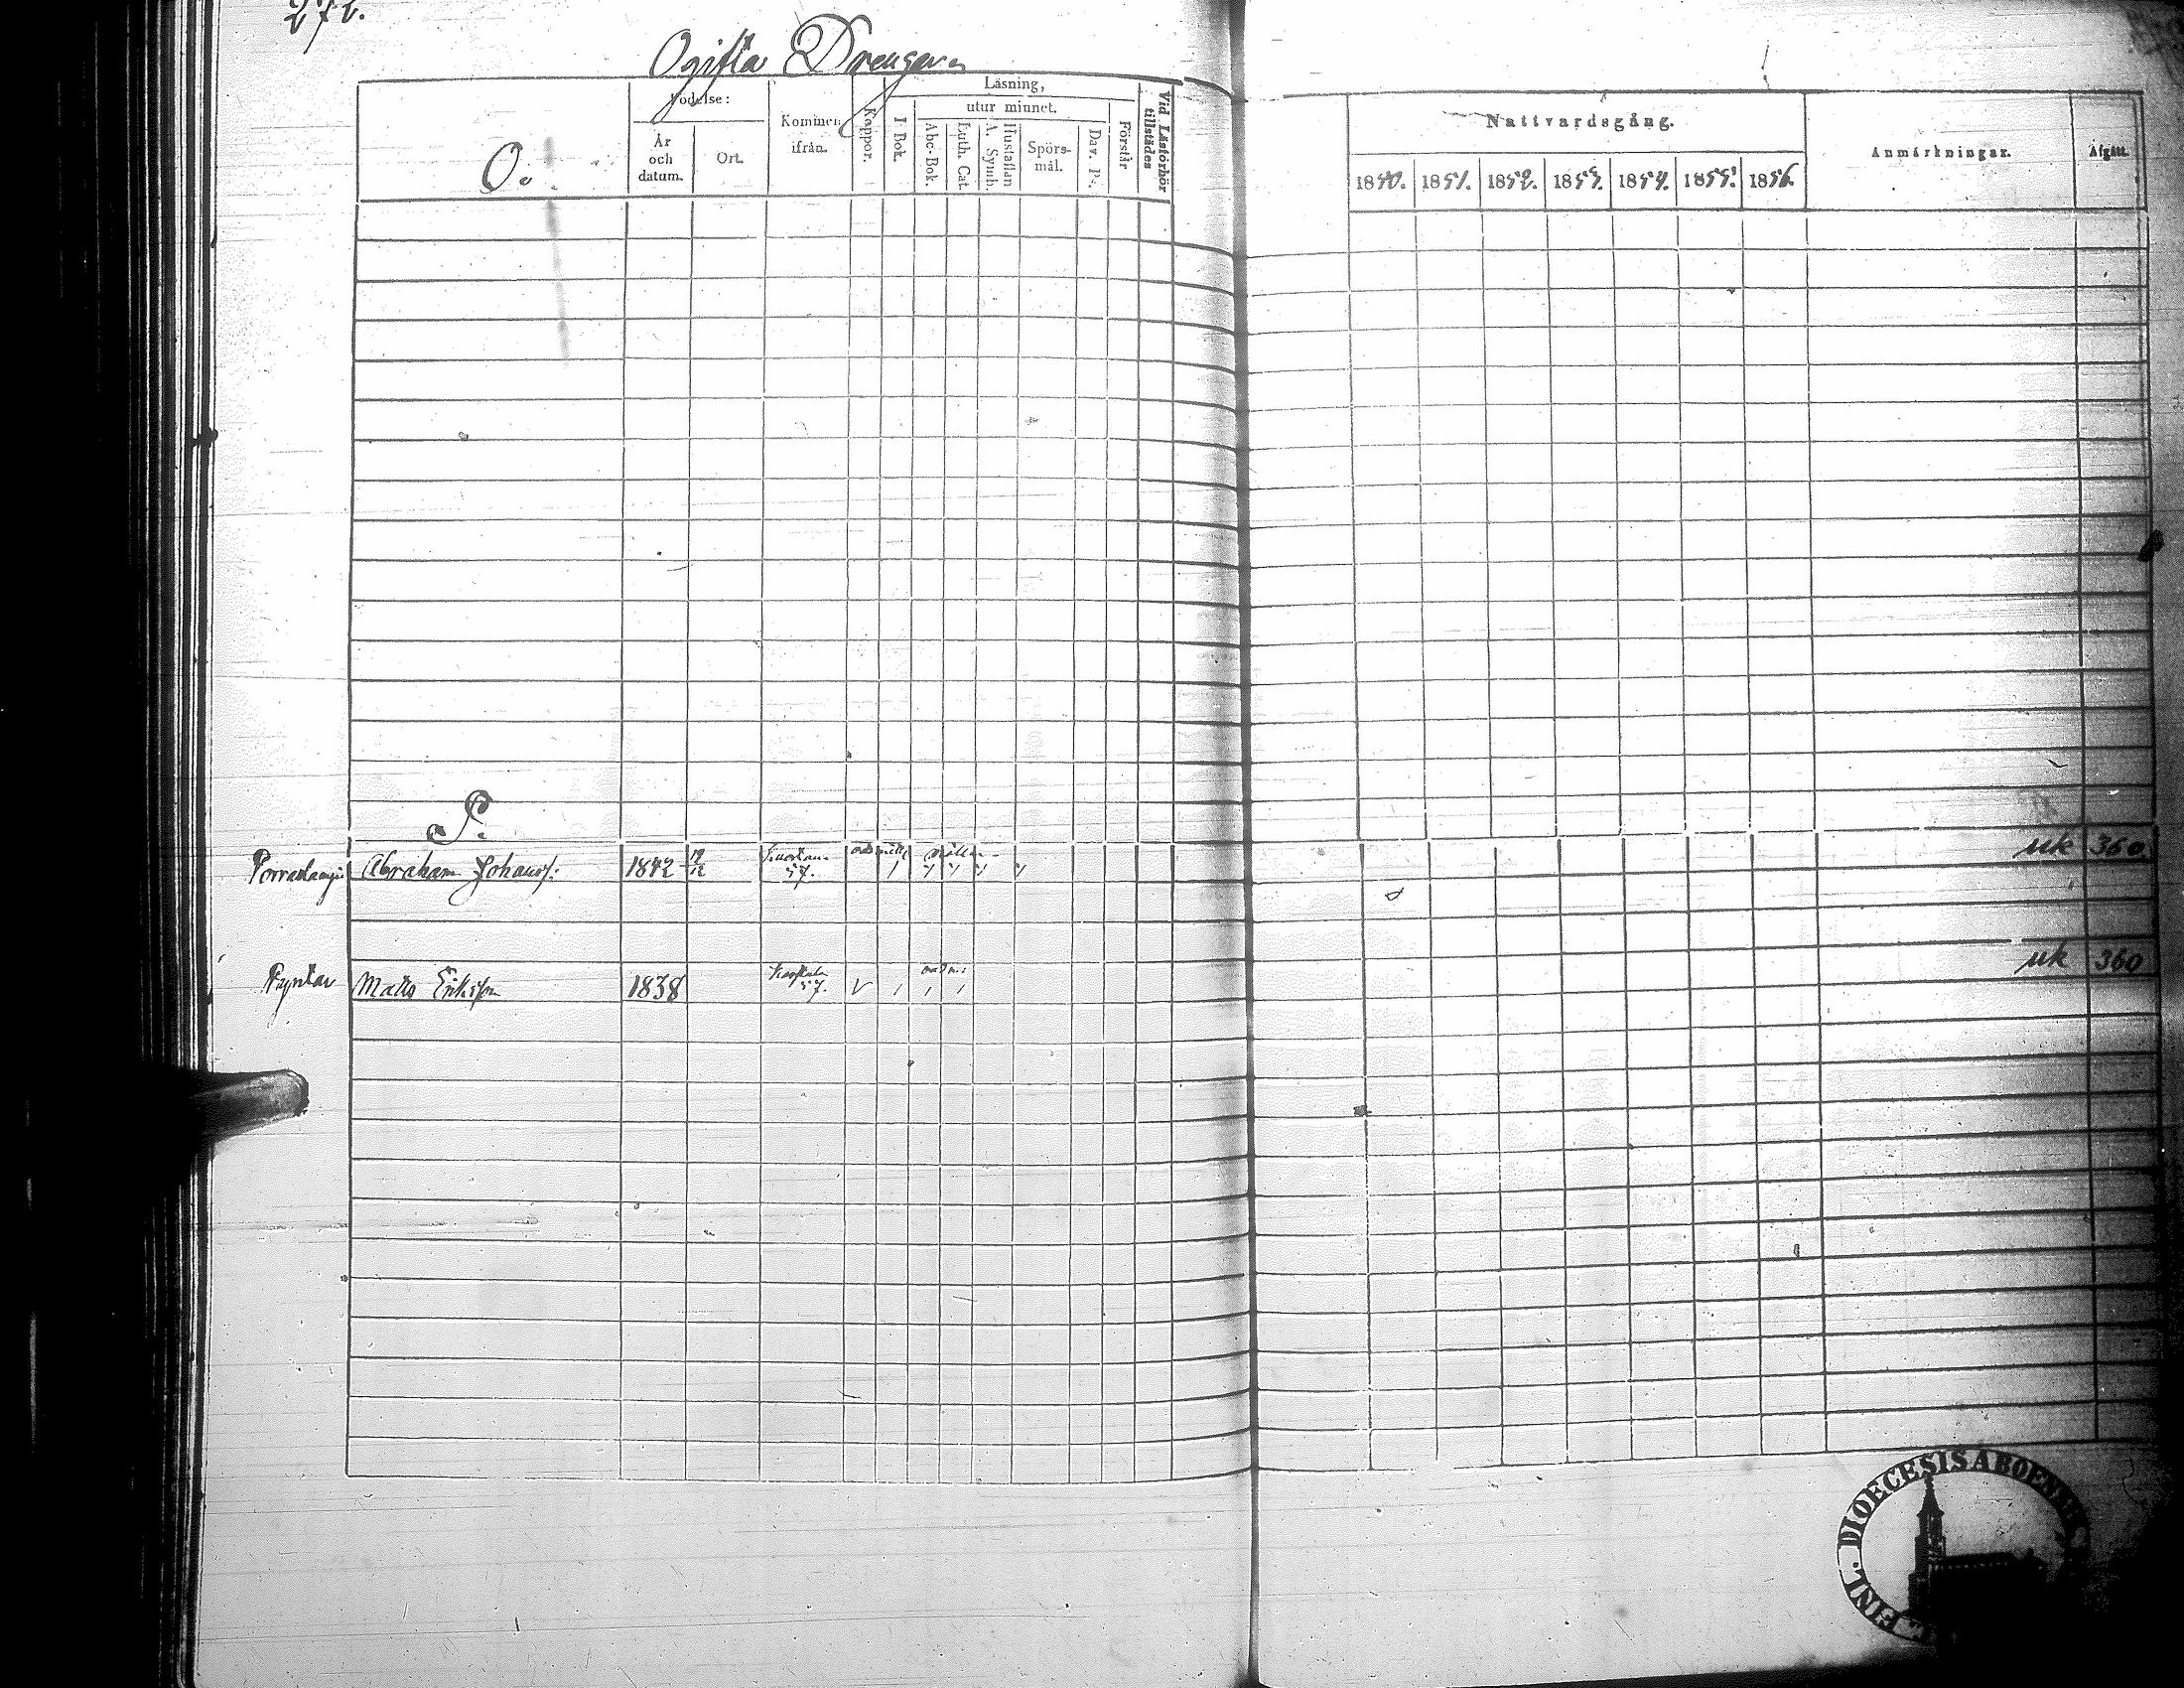 272.
Ogifta Drengar
O.
Födelse:
År och datum.
Ort.
Kommen ifrån.
Koppor.
Läsning,
I Bok.
utur minnet.
Abc-Bok.
Luth. Cat.
A. Symb.
Hustaflan
Spörsmål.
Dav. Ps.
Förstår
Vid Läsförhör tillstädes
Nattvardsgång.
1850. 1851. 1852. 1853. 1854. 1855. 1856.
Anmärkningar.
Afgått.
P.
Abraham Johansf. 1842 57. uk 360.
Matts Eriksson 1838 57. uk 360
FINL. DIOECESIS ABOENSIS